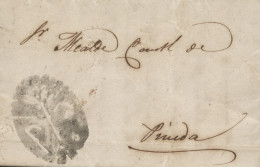 Sr Alcalde Constl de
Pineda